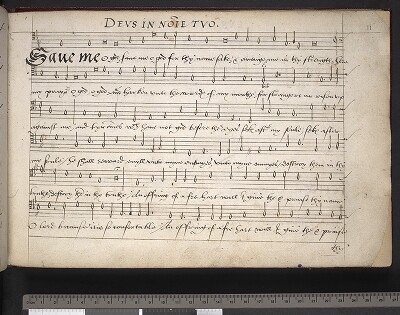 DEVS IN NOĪE TVO.
11
Save me O god save me O god for thy names sake & avenge me in thy strength heare
my prayer O god O god and harken unto the words of my mouthe for strangers are risen up
against me and tyrants wch have not god before their eyes seke after my soule seke after
my soule he shall reward evill unto myne enemyes unto myne enemyes destroy them in thy
truthe destroy them in thy truthe An offring of a free hart will I give the & praise thy name
O lord because it is so comfortable An offring of a free hart will I give the & praise
thy